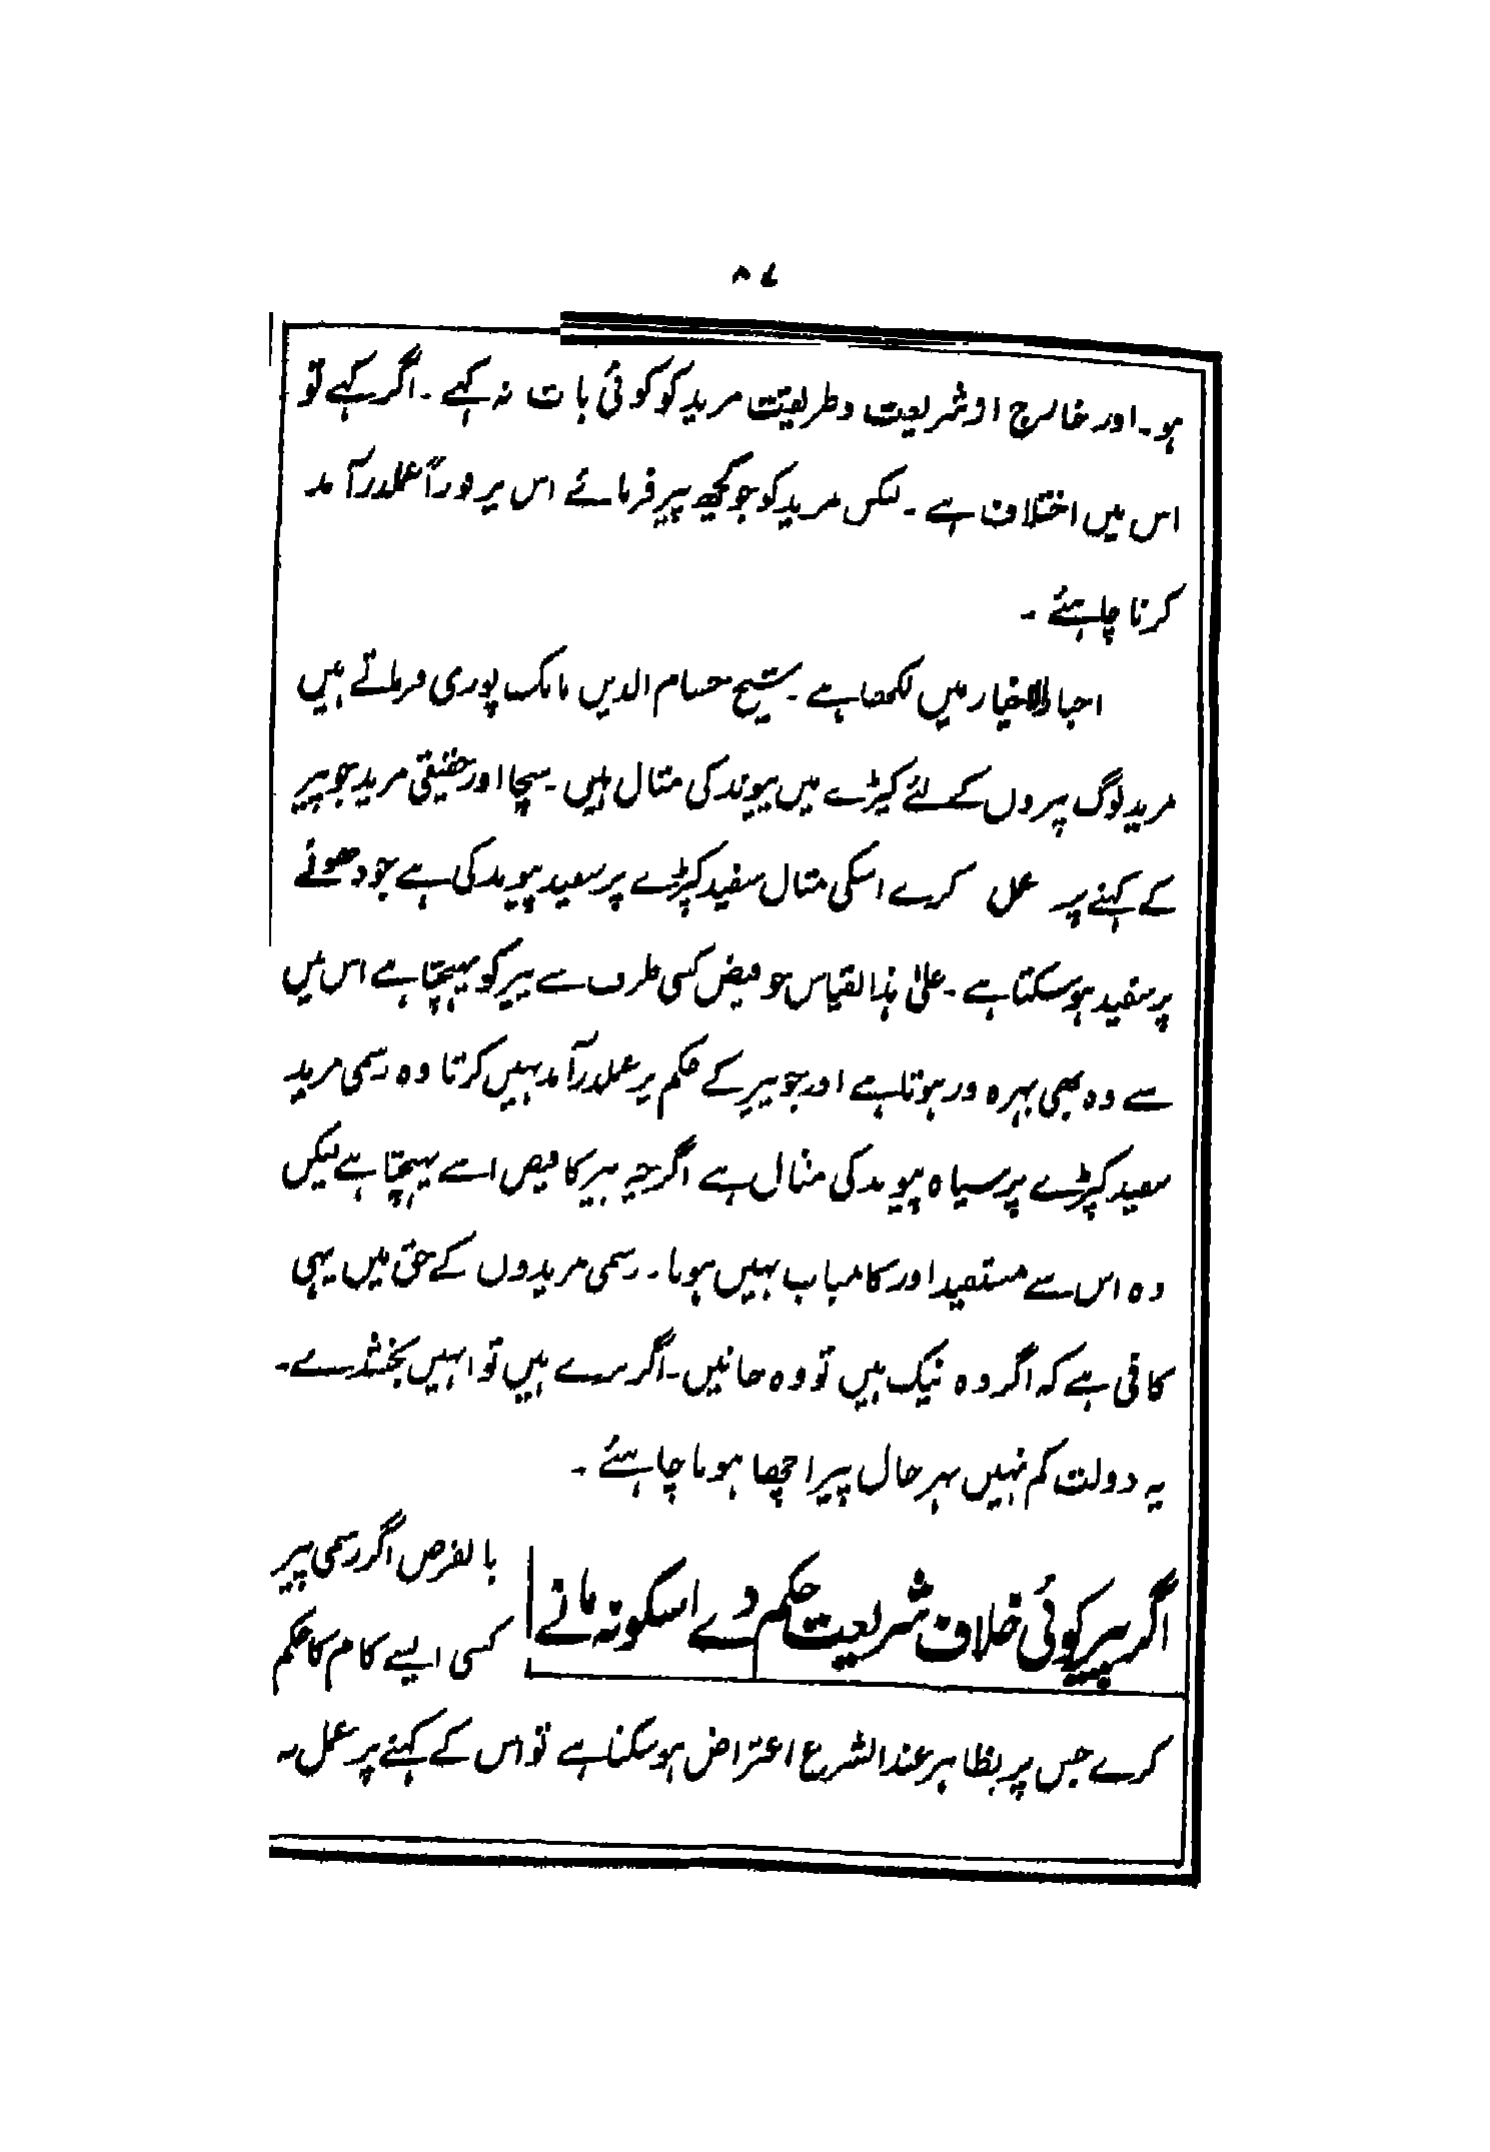 ہو۔ اور خارج از شریعت و طریقت مرید کو کوئی بات نہ کہے ۔ اگر کہے تو
اس میں اختلاف ہے ۔ لیکن مرید کو جو کچھ پیر فرمائے اس پر فوراً عملدرآمد
کرنا چاہئے ۔
اخبار الاخیار میں لکھا ہے ۔ شیخ حسام الدین مانک پوری فرماتے ہیں
مرید لوگ پیروں کے لئے کپڑے میں پیوند کی مثال ہیں ۔ سچا اور حقیقی مرید جو پیر
کے کہنے پر عمل کرے اسکی مثال سفید کپڑے پر سفید پیوند کی ہے جو دھونے
پر سفید ہو سکتا ہے ۔ علیٰ ہذا القیاس جو فیض کسی طرف سے پیر کو پہنچتا ہے اس میں
سے وہ بھی بہرہ ور ہوتا ہے اور جو پیر کے حکم پر عملدرآمد نہیں کرتا وہ رسمی مرید
سفید کپڑے پر سیاہ پیوند کی مثال ہے اگرچہ پیر کا فیض اسے پہنچتا ہے لیکن
وہ اس سے مستفید اور کامیاب نہیں ہوتا ۔ رسمی مریدوں کے حق میں یہی
کافی ہے کہ اگر وہ نیک ہیں تو وہ جانیں ۔ اگر برے ہیں تو انہیں بخشدے ۔
یہ دولت کم نہیں بہر حال پیر اچھا ہونا چاہئے ۔
اگر پیر کوئی خلاف شریعت حکم دے اسکو نہ مانے
بالفرض اگر رسمی پیر
کسی ایسے کام کا حکم
کرے جس پر بظاہر عند الشرع اعتراض ہو سکتا ہے تو اس کے کہنے پر عمل نہ